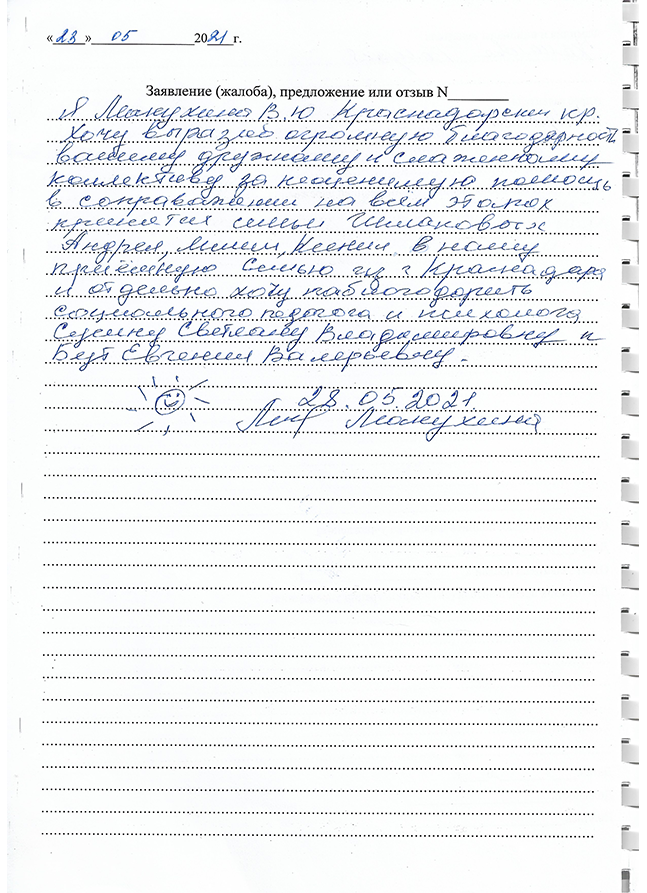 «23» 05 2021 г.
Заявление (жалоба), предложение или отзыв N
Я Манухина В.Ю Краснадарский кр.
Хочу выразить огромную благодарность
вашему дружному и слаженному
коллективу за неоценимую помощь
в соправажении на всех этапах
принятия семьи Шмаковых
Андрея, Ксении в нашу
приёмную семью из г Краснадара
и отдельно хочу паблагодорить
социального педагога и психолога
Сусину Светлану Владимировну и
Безт Евгению Валерьевну.
28.05.2021.
Манухина